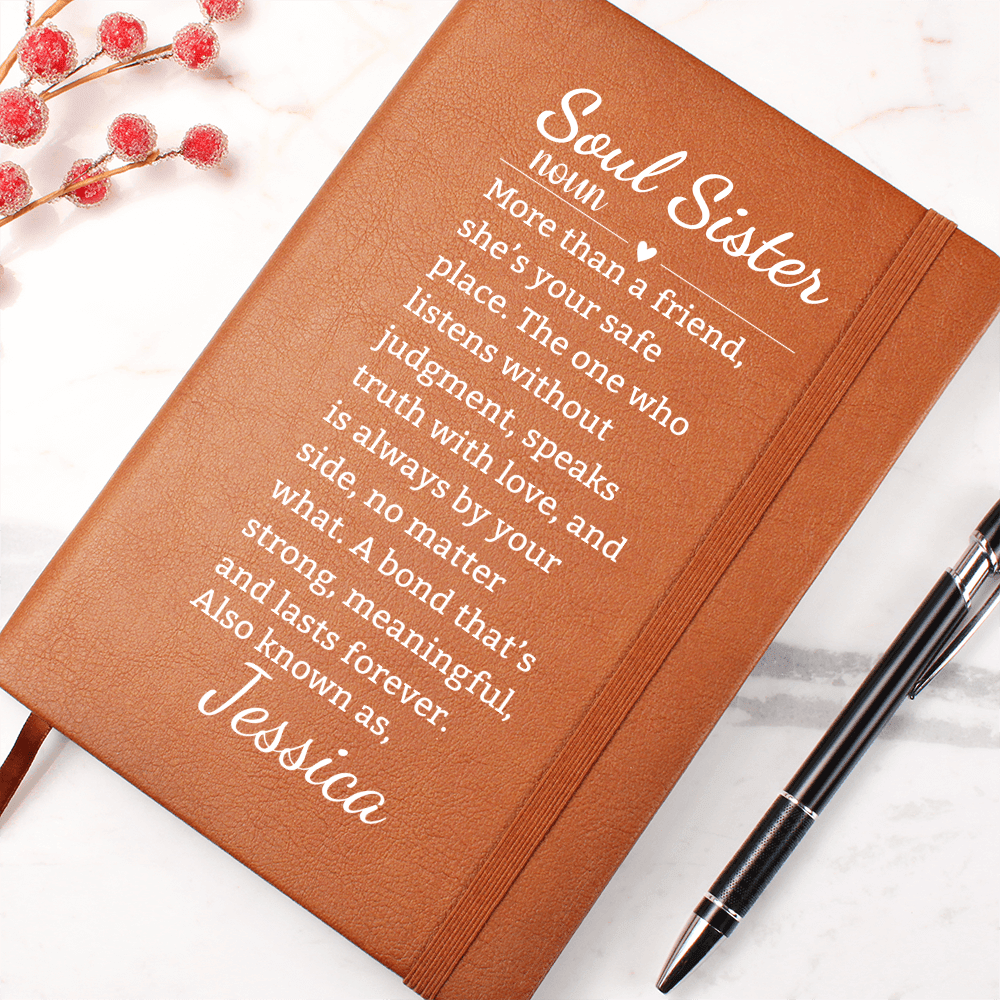 Soul Sister
noun
More than a friend,
she's your safe
place. The one who
listens without
judgment, speaks
truth with love, and
is always by your
side, no matter
what. A bond that's
strong, meaningful,
and lasts forever.
Also known as,
Jessica